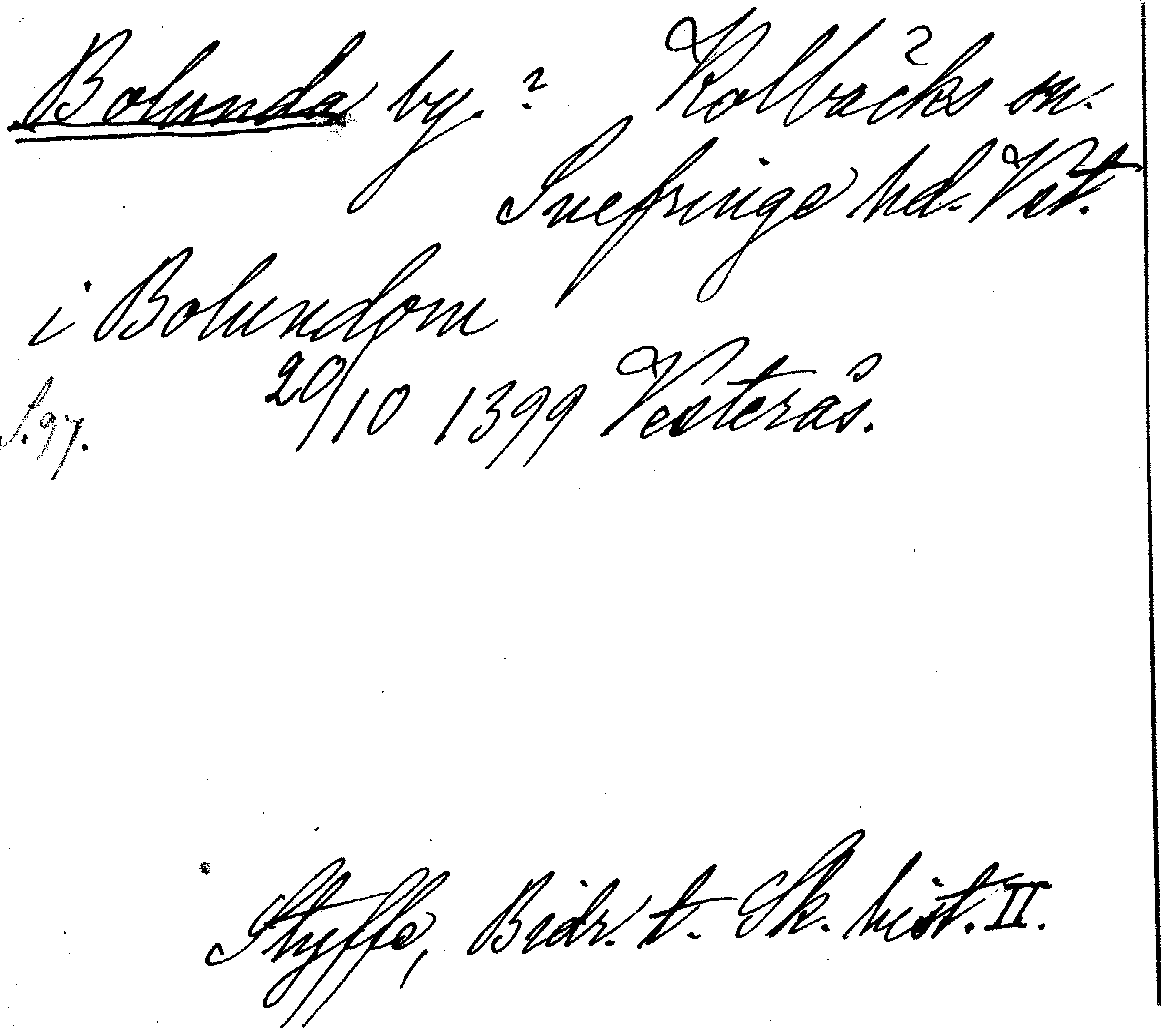 Bolunda by.? Kolbäcks sn.
Snefringe hd. Vst.
i Bolundom
20/10 1399 Vesterås.
S. 97.
Styffe, Bidr. t. Sk. hist. II.